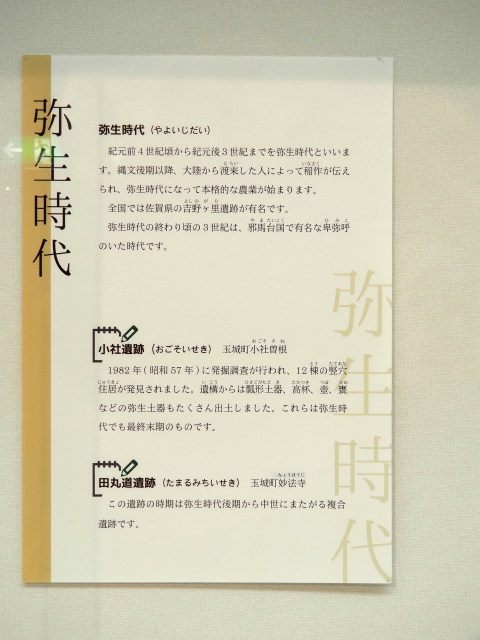 弥生時代
弥生時代（やよいじだい）
紀元前４世紀頃から紀元後３世紀までを弥生時代といいま
す。縄文後期以降、大陸から渡来した人によって稲作が伝え
られ、弥生時代になって本格的な農業が始まります。
全国では佐賀県の吉野ヶ里遺跡が有名です。
弥生時代の終わり頃の３世紀は、邪馬台国で有名な卑弥呼
のいた時代です。
小社遺跡（おごそいせき）　玉城町小社曽根
1982年（昭和57年）に発掘調査が行われ、12棟の竪穴
住居が発見されました。遺構からは瓢形土器、高杯、壺、甕
などの弥生土器もたくさん出土しました。これらは弥生時
代でも最終末期のものです。
田丸道遺跡（たまるみちいせき）　玉城町妙法寺
この遺跡の時期は弥生時代後期から中世にまたがる複合
遺跡です。
弥生時代